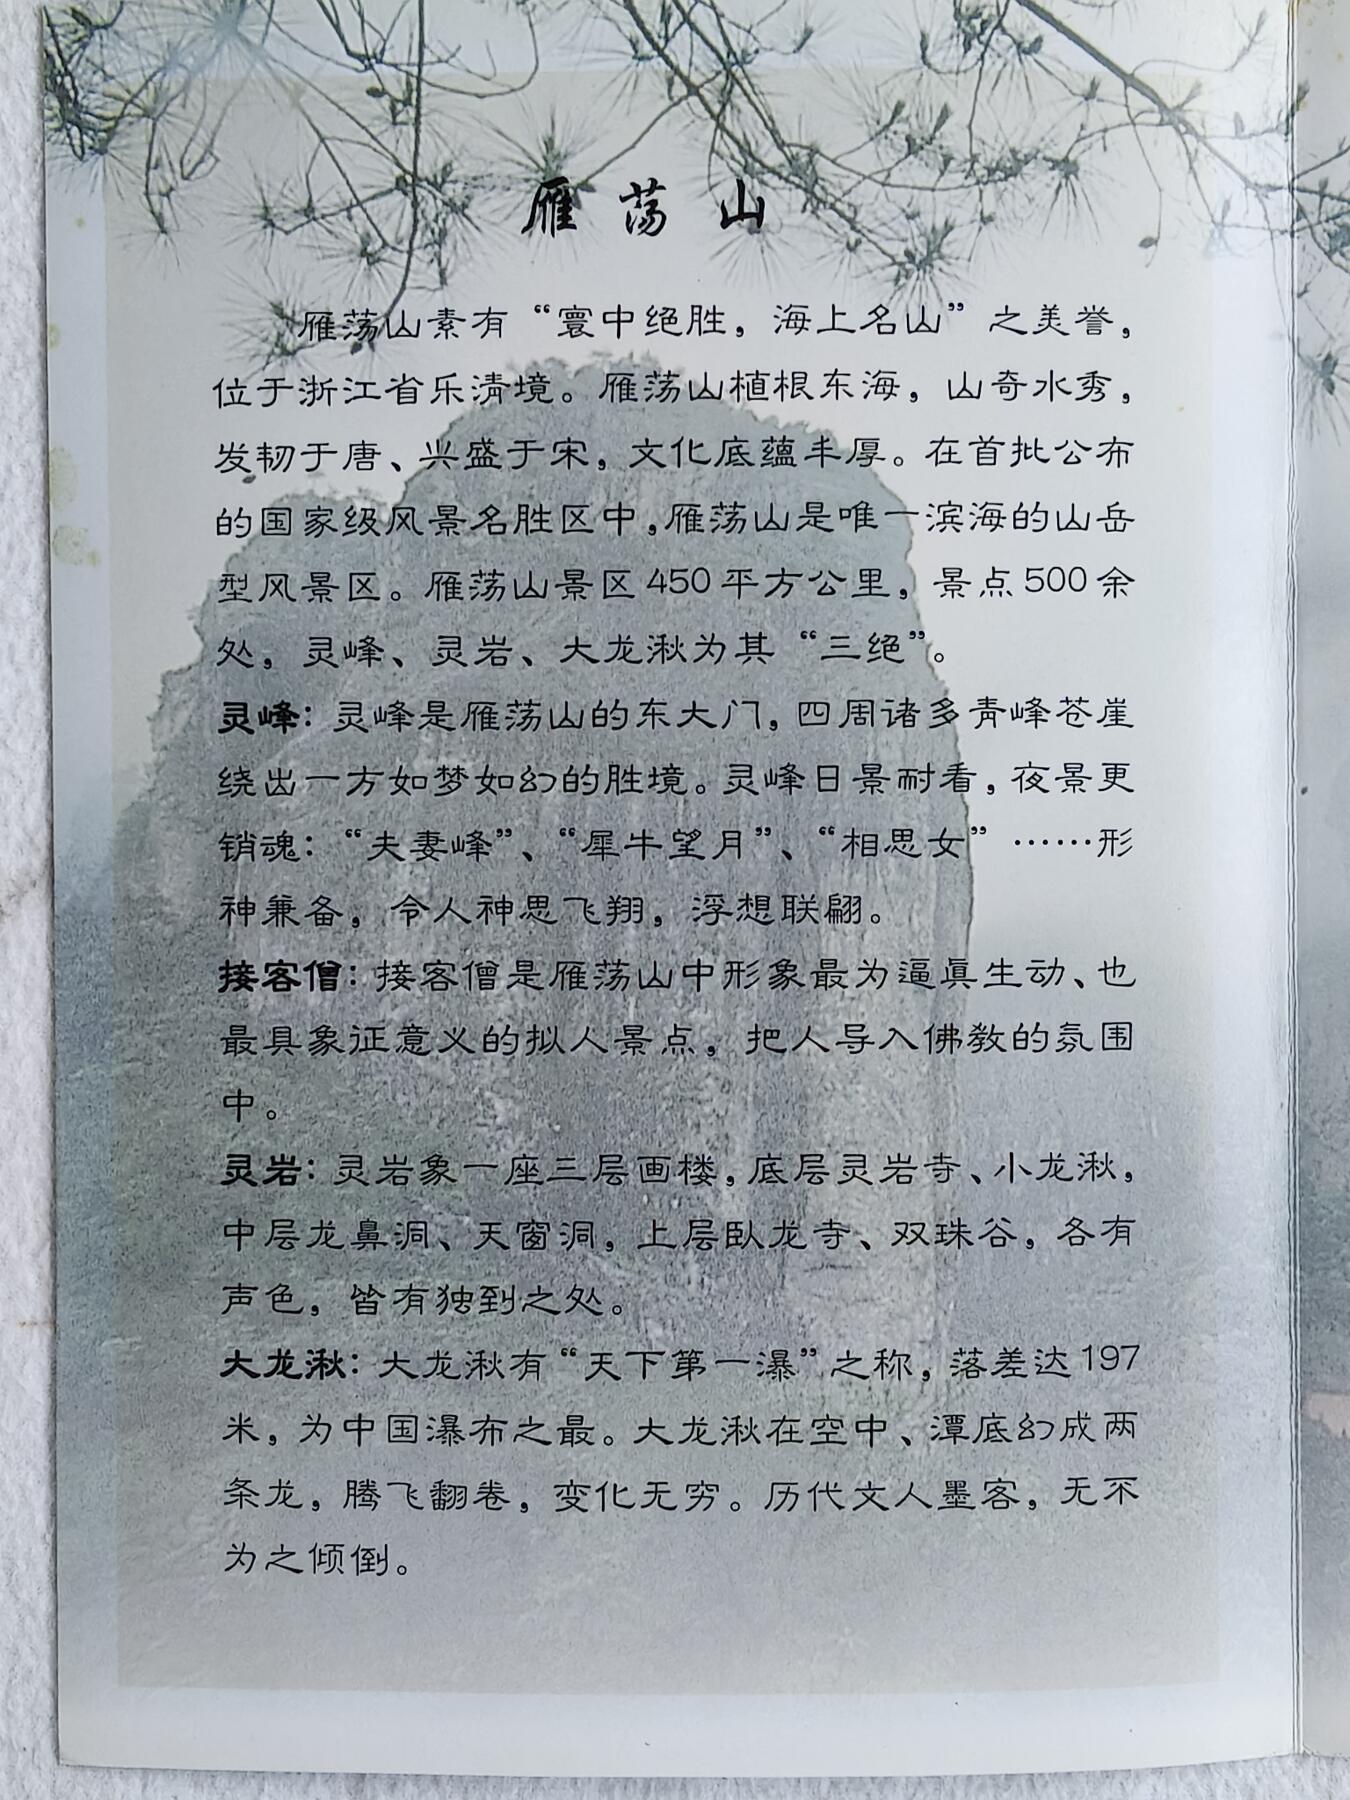 雁荡山
雁荡山素有“寰中绝胜，海上名山”之美誉，
位于浙江省乐清境。雁荡山植根东海，山奇水秀，
发轫于唐、兴盛于宋，文化底蕴丰厚。在首批公布
的国家级风景名胜区中，雁荡山是唯一滨海的山岳
型风景区。雁荡山景区450平方公里，景点500余
处，灵峰、灵岩、大龙湫为其“三绝”。
灵峰：灵峰是雁荡山的东大门，四周诸多青峰苍崖
绕出一方如梦如幻的胜境。灵峰日景耐看，夜景更
销魂：“夫妻峰”、“犀牛望月”、“相思女”……形
神兼备，令人神思飞翔，浮想联翩。
接客僧：接客僧是雁荡山中形象最为逼真生动、也
最具象征意义的拟人景点，把人导入佛教的氛围
中。
灵岩：灵岩象一座三层画楼，底层灵岩寺、小龙湫，
中层龙鼻洞、天窗洞，上层卧龙寺、双珠谷，各有
声色，皆有独到之处。
大龙湫：大龙湫有“天下第一瀑”之称，落差达197
米，为中国瀑布之最。大龙湫在空中、潭底幻成两
条龙，腾飞翻卷，变化无穷。历代文人墨客，无不
为之倾倒。